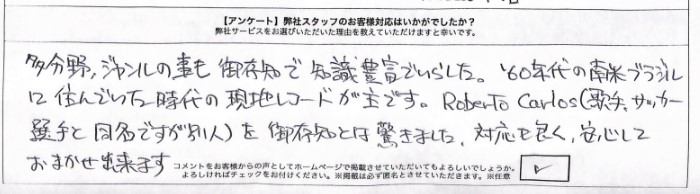 【アンケート】弊社スタッフのお客様対応はいかがでしたか？
弊社サービスをお選びいただいた理由を教えていただけますと幸いです。
多分野,ジャンルの事も御存知で知識豊富でいらした。'60年代の南米ブラジル
に住んでいた時代の現地レコードが主です。Roberto Carlos(歌手,サッカー
選手と同名ですが別人)を御存知とは驚きました,対応も良く,安心して
おまかせ出来ます
コメントをお客様からの声としてホームページで掲載させていただいてもよろしいでしょうか。
よろしければチェックをお付けください。※掲載は必ず匿名とさせていただきます。※任意